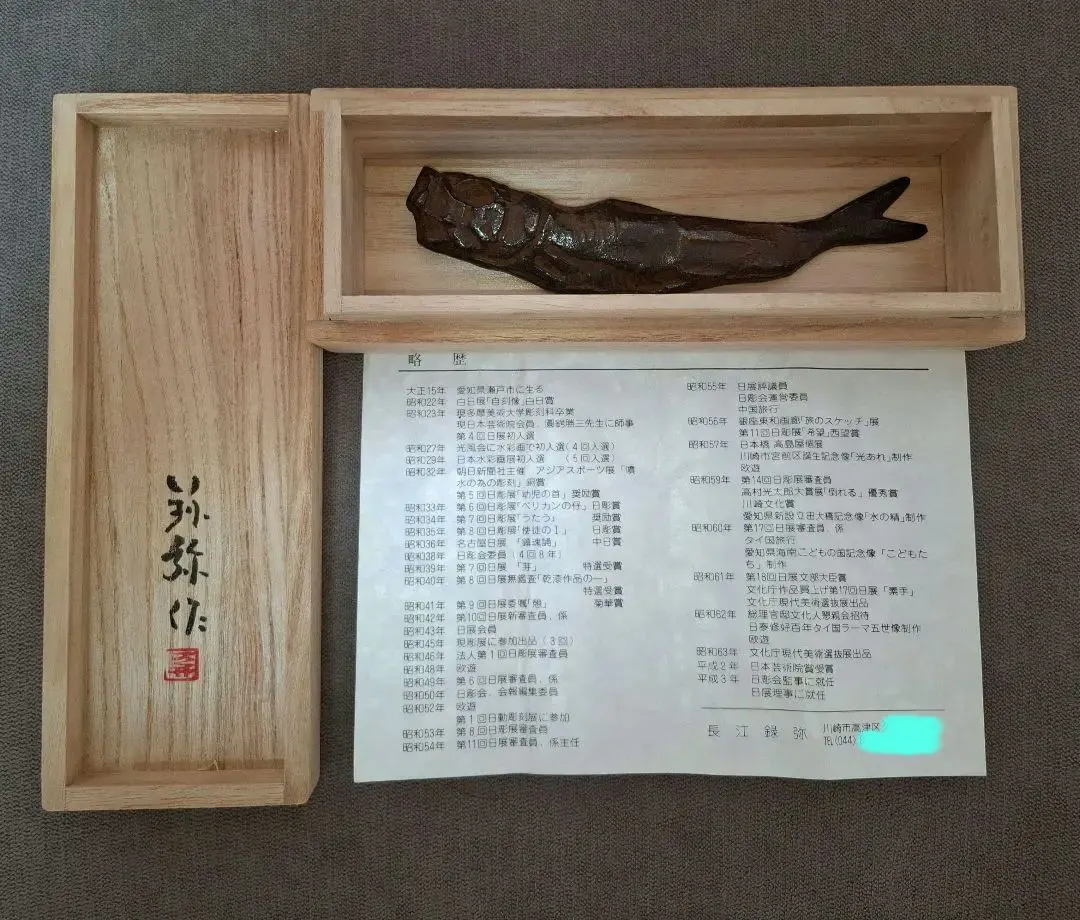 録弥作
略 歴
大正15年 愛知県瀬戸市に生る
昭和22年 白日展「自刻像」白日賞
昭和23年 現多摩美術大学彫刻科卒業
現日本芸術院会員、圓鍔勝三先生に師事
第4回日展初入選
昭和27年 光風会に水彩画で初入選(4回入選)
昭和29年 日本水彩画展初入選 (5回入選)
昭和32年 朝日新聞社主催 アジアスポーツ展「噴
水の為の彫刻」銅賞
第5回日彫展「幼児の首」奨励賞
昭和33年 第6回日彫展「ペリカンの仔」日彫賞
昭和34年 第7回日彫展「うたう」 奨励賞
昭和35年 第8回日彫展「使徒のI」 日彫賞
昭和36年 名古屋日展 「鎮魂誦」 中日賞
昭和38年 日彫会委員(4回8年)
昭和39年 第7回日展 「芽」 特選受賞
昭和40年 第8回日展無鑑査「乾漆作品の一」
特選受賞
昭和41年 第9回日展委嘱「想」 菊華賞
昭和42年 第10回日展新審査員、係
昭和43年 日展会員
昭和45年 現彫展に参加出品(3回)
昭和46年 法人第1回日彫展審査員
昭和48年 欧遊
昭和49年 第6回日展審査員、係
昭和50年 日彫会、会報編集委員
昭和52年 欧遊
第1回日動彫刻展に参加
昭和53年 第8回日彫展審査員
昭和54年 第11回日展審査員、係主任
昭和55年 日展評議員
日彫会運営委員
中国旅行
昭和56年 銀座東和画廊「旅のスケッチ」展
第11回日彫展「希望」西望賞
昭和57年 日本橋 高島屋個展
川崎市宮前区誕生記念像「光あれ」制作
欧遊
昭和59年 第14回日彫展審査員
高村光太郎大賞展「倒れる」優秀賞
川崎文化賞
愛知県新設立田大橋記念像「水の精」制作
昭和60年 第17回日展審査員、係
タイ国旅行
愛知県海南こどもの国記念像「こどもた
ち」制作
昭和61年 第18回日展文部大臣賞
文化庁作品買上げ第17回日展「素手」
文化庁現代美術選抜展出品
昭和62年 総理官邸文化人懇親会招待
日泰修好百年タイ国ラーマ五世像制作
欧遊
昭和63年 文化庁現代美術選抜展出品
平成2年 日本芸術院賞受賞
平成3年 日彫会監事に就任
日展理事に就任
長江録弥 川崎市高津区
TEL(044)